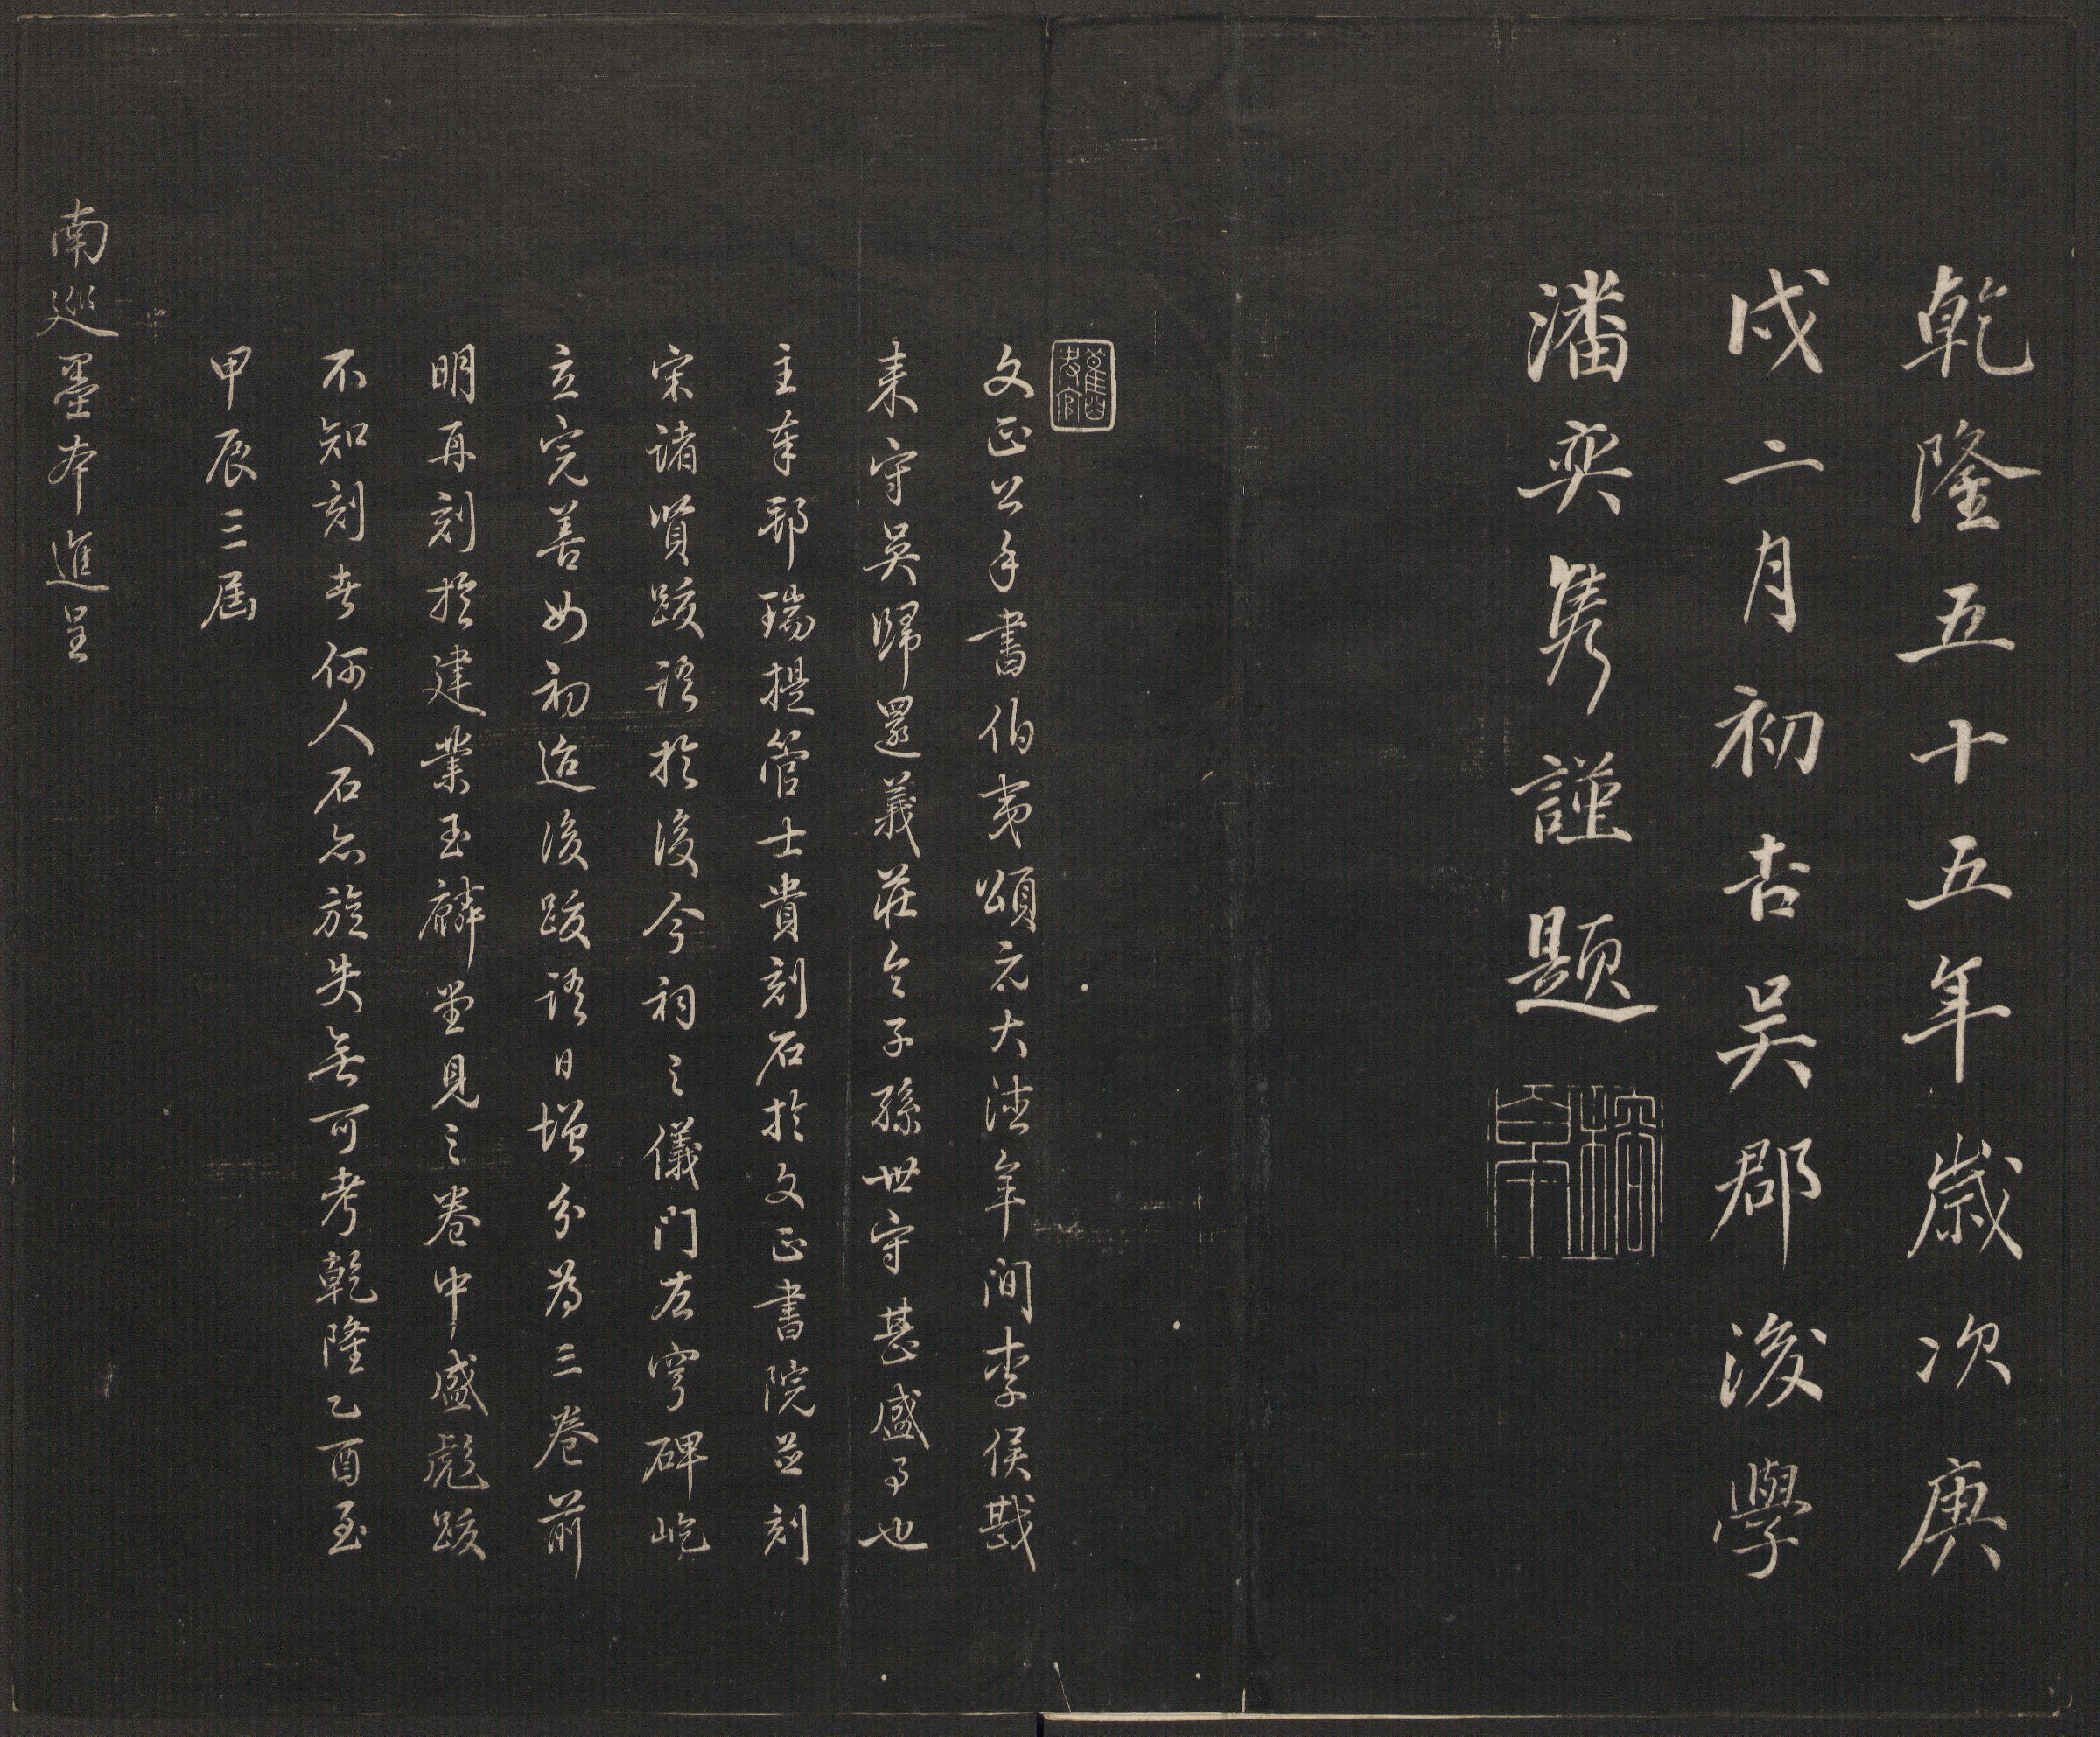 乾隆五十五年歲次庚
戌二月初吉吳郡後學
潘奕雋謹題
文正公手書伯夷頌元大德年間李侯戡
來守吳歸還義莊令子孫世守甚盛事也
主奉邨瑞提管士貴刻石於文正書院並刻
宋諸賢跋語於後今祠之儀門左穹碑屹
立完善如初迨後跋語日增分為三卷前
明再刻於建業玉麟堂見之卷中盛彪跋
不知刻者何人石亦旋失無可考乾隆乙酉至
甲辰三屆
南巡墨本進呈